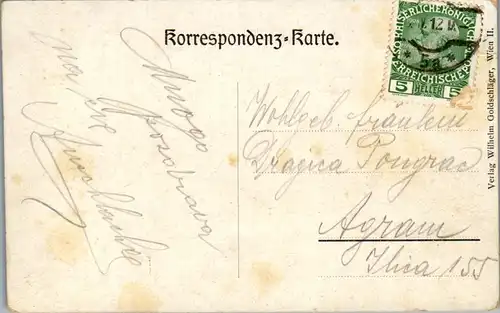 Korrespondenz-Karte.
KAISERLICHE KÖNIGLICHE
ÖSTERREICHISCHE
5 HELLER 5
Mnogo
pozdrava
Wohlgeb. Fräulein
Dragica Pongrac
Agram
Ilica 155
Verlag Wilhelm Goldschläger, Wien II.